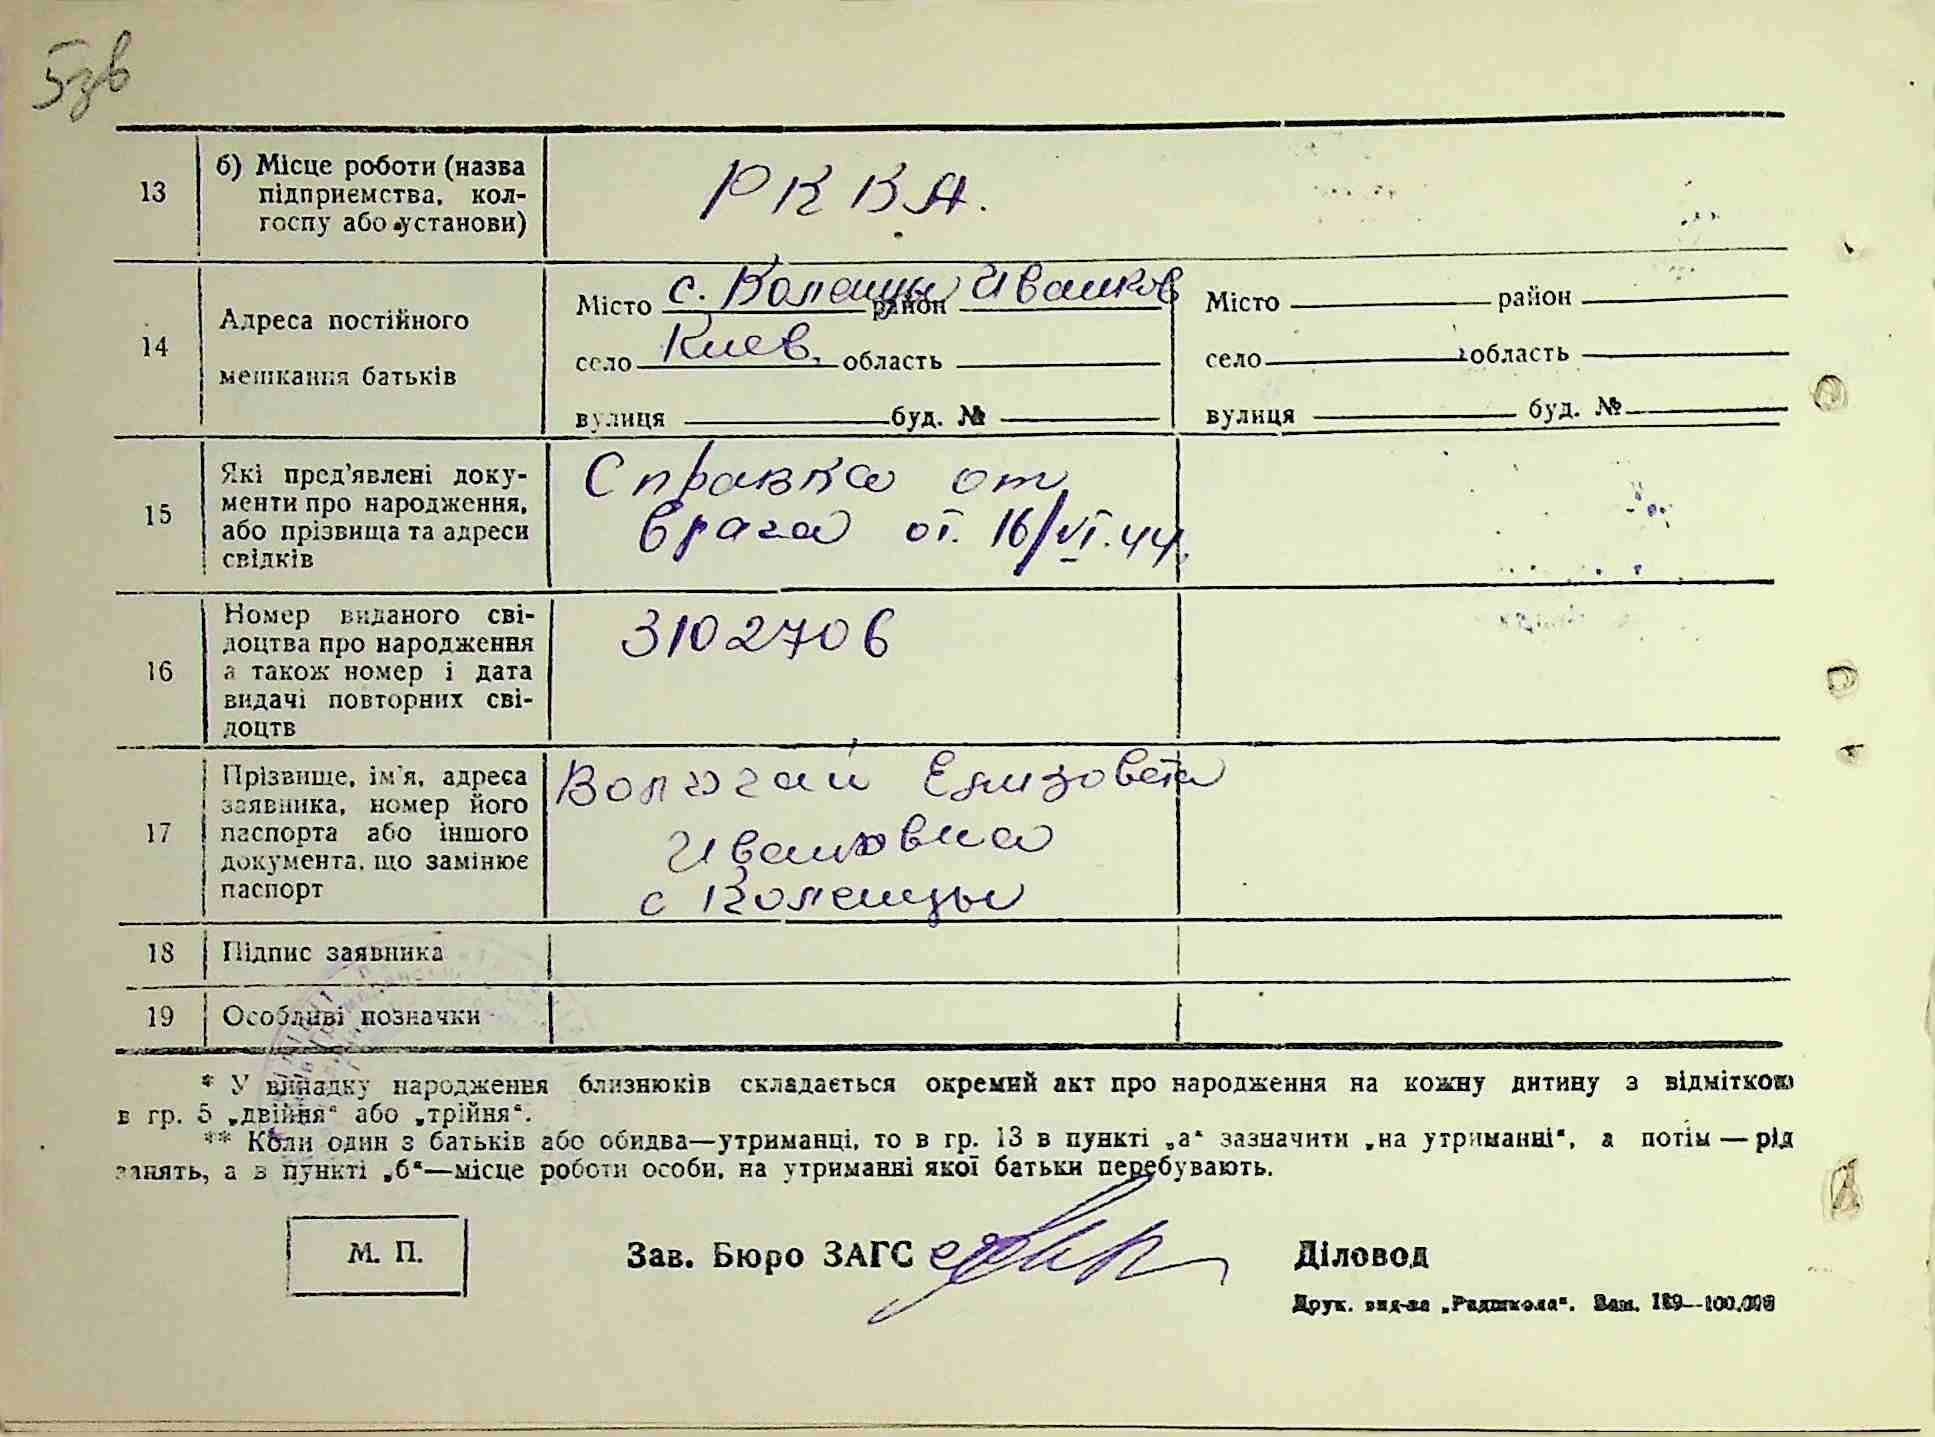 5зв
13
б) Місце роботи (назва
підприємства, кол-
госпу або установи)
РККА.
14
Адреса постійного
мешкання батьків
Місто с. Коленцы район Иванков
село Киев. область
вулиця буд. №
Місто район
село область
вулиця буд. №
15
Які пред'явлені доку-
менти про народження,
або прізвища та адреси
свідків
Справка от
врача от. 16/VI.44.
16
Номер виданого сві-
доцтва про народження
а також номер і дата
видачі повторних сві-
доцтв
3102706
17
Прізвище, ім'я, адреса
заявника, номер його
паспорта або іншого
документа, що замінює
паспорт
Елизовета
Ивановна
с Коленцы
18
Підпис заявника
19
Особливі позначки
* У випадку народження близнюків складається окремий акт про народження на кожну дитину з відміткою
в гр. 5 „двійня“ або „трійня“.
** Коли один з батьків або обидва—утриманці, то в гр. 13 в пункті „а“ зазначити „на утриманні“, а потім — рід
занять, а в пункті „б“—місце роботи особи, на утриманні якої батьки перебувають.
М. П.
Зав. Бюро ЗАГС
Діловод
Друк. вид-ва „Радшкола“. Зам. 189—100.000